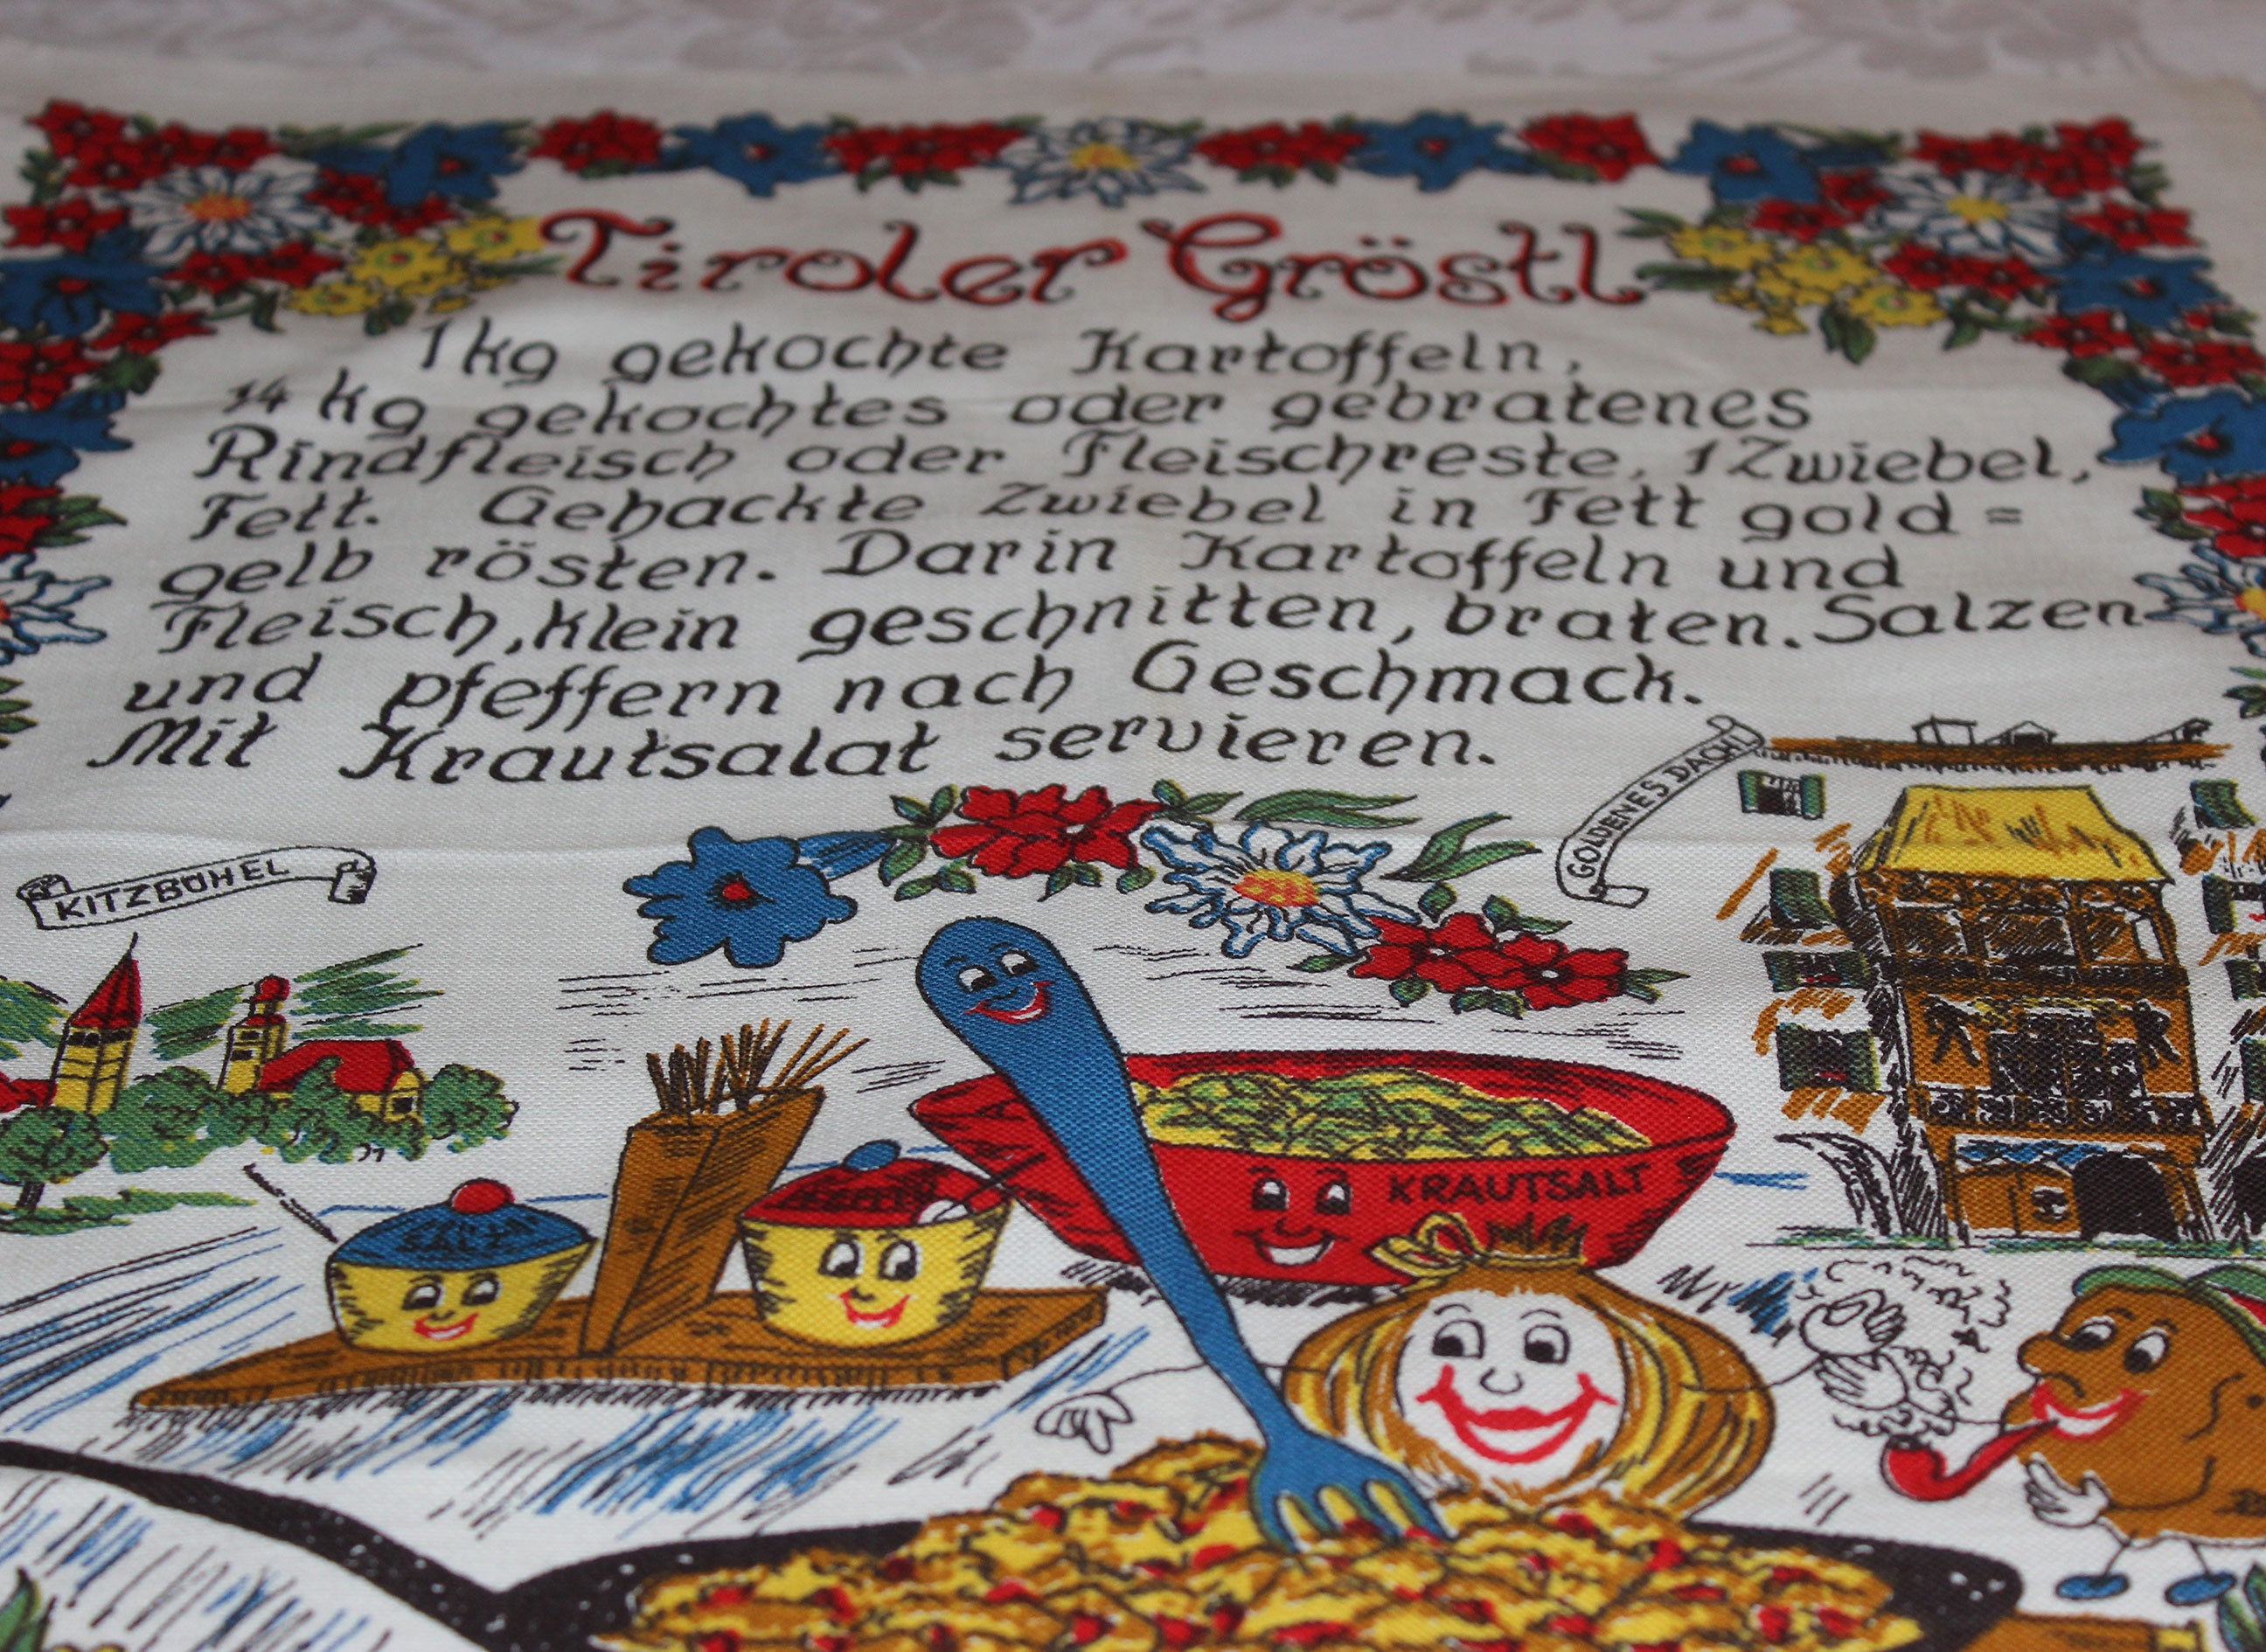 Tiroler Gröstl
1 kg gekochte Kartoffeln,
14 kg gekochtes oder gebratenes
Rindfleisch oder Fleischreste, 1 Zwiebel,
Fett. Gehackte Zwiebel in Fett gold=
gelb rösten. Darin Kartoffeln und
Fleisch, klein geschnitten, braten. Salzen
und pfeffern nach Geschmack.
Mit Krautsalat servieren.
GOLDENES DACHL
KITZBÜHEL
KRAUTSALT
SALZ